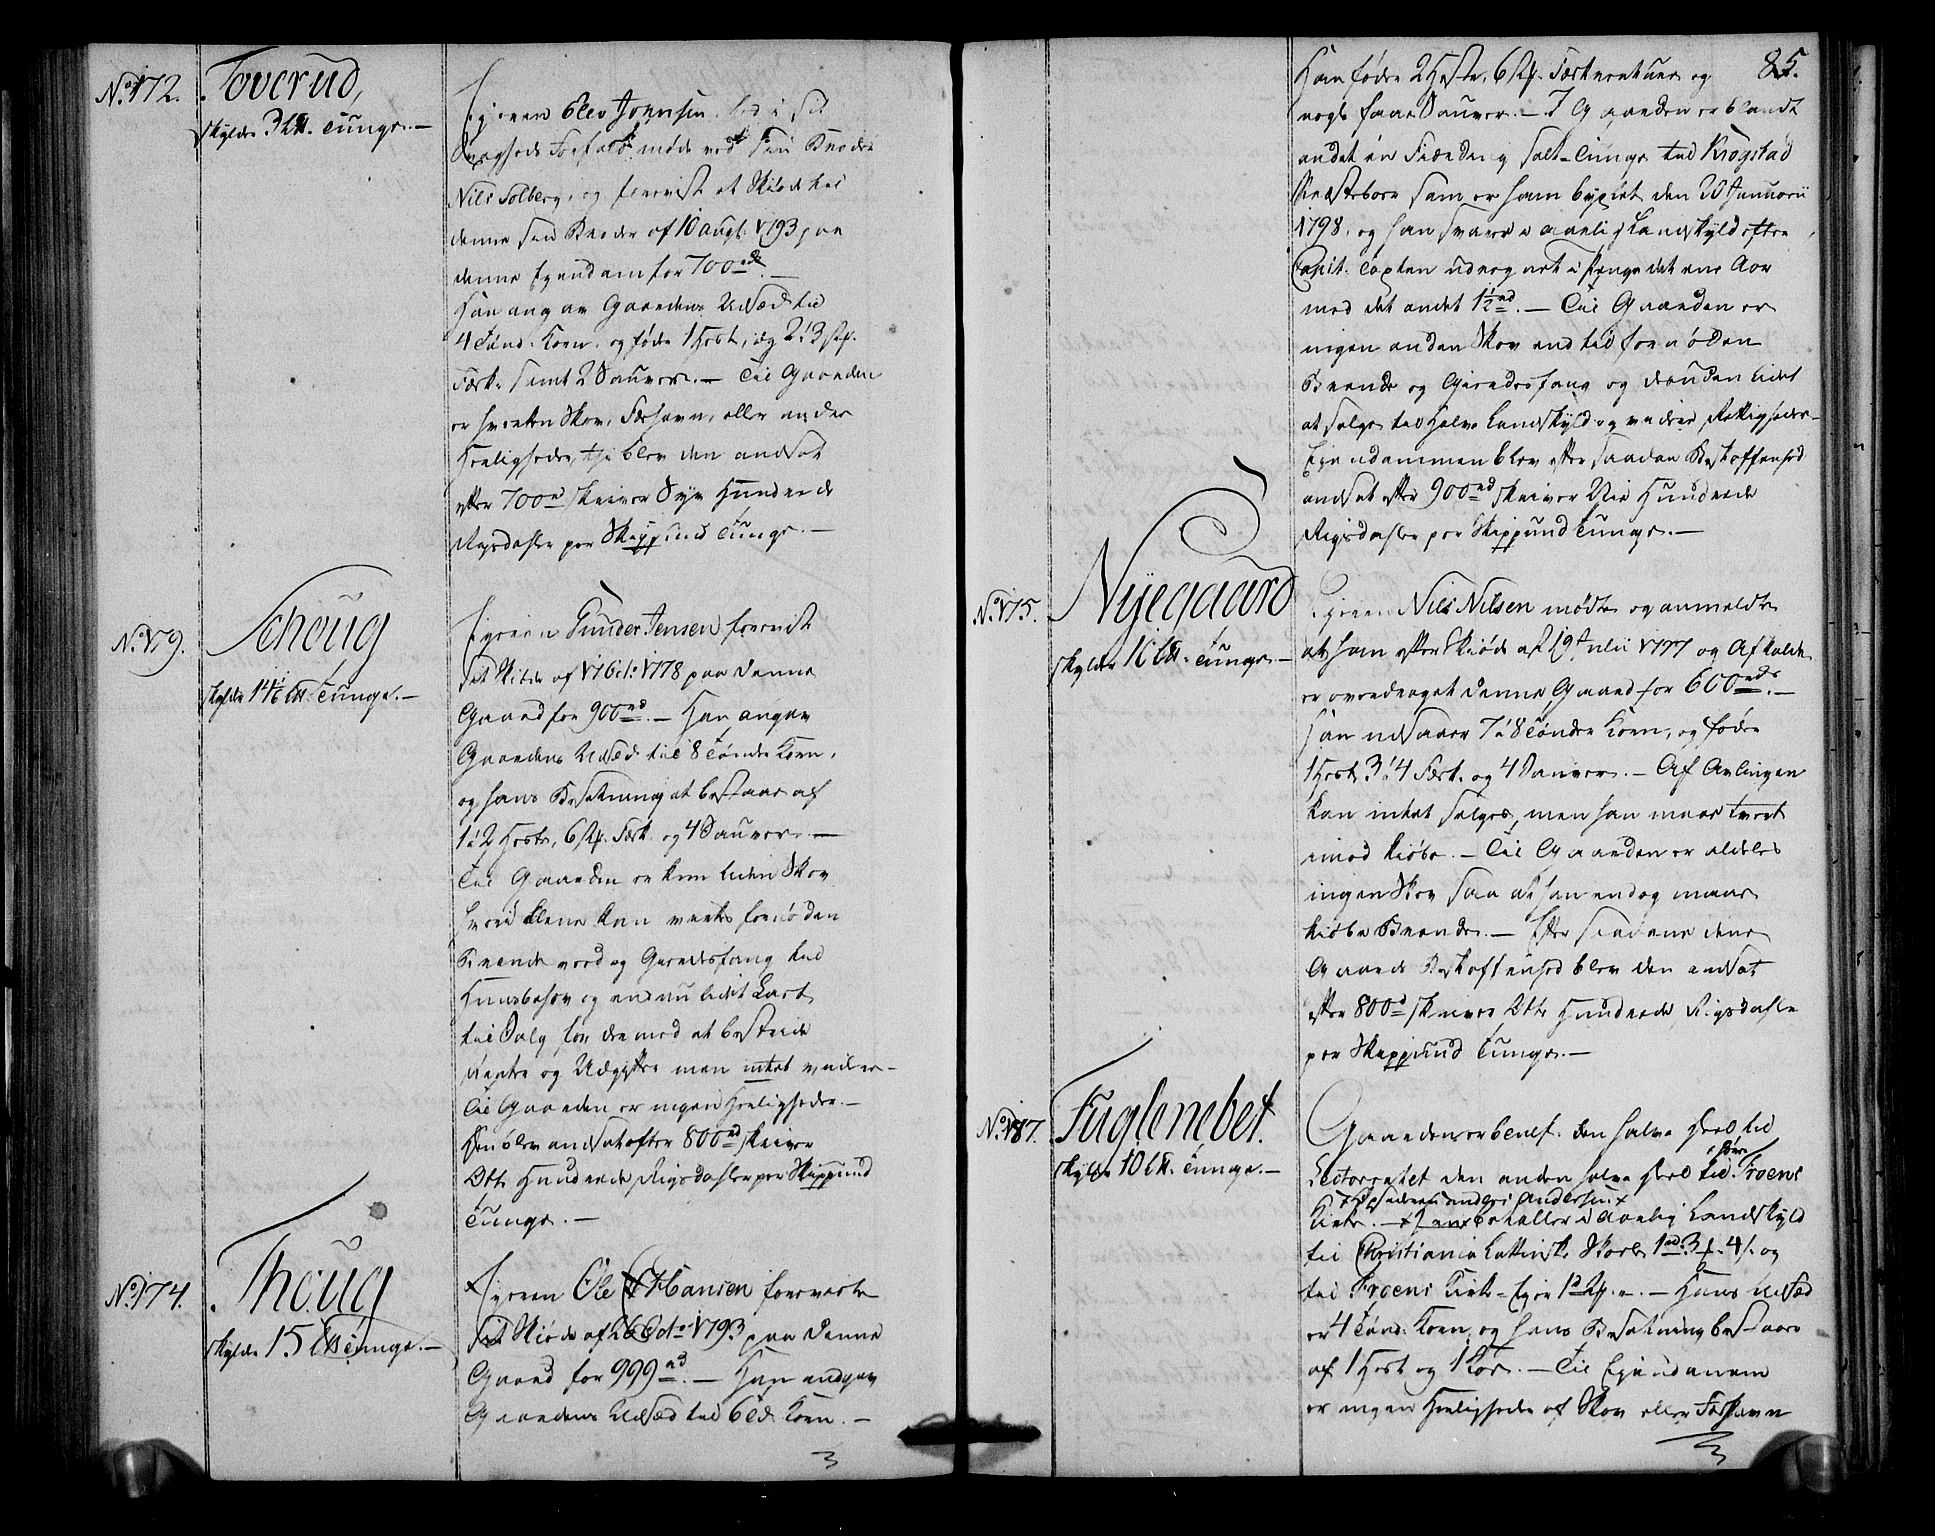 No. 172. Toverud,
skylder 3 L℔. Tunge. —
Eyeren Elev Jonnsen, lod i Sit
Svagheds Forfald møde ved Sin Broder
Niels Solberg, og foreviste et Skiøde hos
denne sin Broder af 10 Augt. 1793 paa
denne Eyendom for 700 rd. —
Han angav Gaardens Udsæd til
4 Tønd. Korn, og føder 1 Hest, og 2 à 3 stk.
Fæ, samt 2 Sauver. — Til Gaarden
er hverken Skov, Fæhavn, eller andre
Herligheder, thi blev den ansat
efter 700 rd skriver Syv Hundrede
Rigsdaler per Skippund Tunge. —
No. 179. Schoug
skylder 14⅙ L℔. Tunge. —
Eyeren Gunder Jensen foreviste
Sit Skiøde af 1778 paa denne
Gaard for 900 rd. — Han angav
Gaardens Udsæd til 8 Tønder Korn,
og hans Besætning at bestaae af
1 à 2 Heste, 6 Stk. Fæ og 4 Sauver. —
Til Gaarden er kun liden Skov
hvori alene kan vækste fornøden
Brændeved og Gierdesfang til
Huusbehov og endnu lidet Last
til Salg for dermed at bestride
Renter og Udgifter men intet videre —
Til Gaarden er ingen Herligheder. —
Den blev ansat efter 800 rd skriver
Otte Hundrede Rigsdaler per Skippund
Tunge. —
No. 174. Thoug
skylder 15 L℔ Tunge. —
Eyeren Ole Hansen foreviste
Sit Skiøde af 26 Octo. 1793 paa denne
Gaard for 999 rd. — Han angav
Gaardens Udsæd til 6 Td. Korn. —
85.
Han føder 2 Heste, 6 Stk. Fæ og
nogle faae Sauver. — I Gaarden er blandt
andet en Fierding Salt-Tunge til Krogstad
Præsteboel som er ham byxlet den 20 Januarii
1798, og han svarer i aarlig Landskyld efter
Capit. Taxten udregnet i Penge det ene Aar
med det andet 1½ rd. — Til Gaarden er
ingen anden Skov end til fornøden
Brænde og Gierdesfang og desuden lidet
at selge til Hielp Landskyld og videre Rettigheder —
Eyendommen blev efter saadan Beskaffenhed
ansat efter 900 rd skriver Nie Hundrede
Rigsdaler per Skippund Tunge. —
No. 175. Nyegaard
skylder 10 L℔. Tunge. —
Eyeren Niels Nilsen mødte og anmeldte
at han efter Skiøde af 19 Julii 1777 og Afkald
er overdraget denne Gaard for 600 rd. —
Han udsaaer 7 à 8 Tønder Korn, og føder
1 Hest, 3 à 4 Fæ. og 4 Sauver. — Af Avlingen
kan intet selges, men han maae tvert
imod kiøbe. — Til Gaarden er aldeles
ingen Skov saa at han endog maae
kiøbe Brænde. — Efter saadan denne
Gaards Beskaffenhed blev den ansat
efter 800 rd skriver Otte Hundrede Rigsdaler
per Skippund Tunge. —
No. 187. Fuglenebet.
skylder 10 L℔. Tunge. —
Gaarden er benef. den halve Deel til
Lectoratet den anden halve Deel til Froens
Anders Andersen
Kirke. — betaller i Aarlig Landskyld
til Christiania Lattinske Skole 1 rd. 3 f. 4 s. og
til Froens Kirke-Eyer — Hans Udsæd
er 4 Tønd. Korn, og hans Besætning bestaaer
af 1 Hest og 1 Koe. — Til Eyendommen
er ingen Herligheder af Skov eller Fæhavn